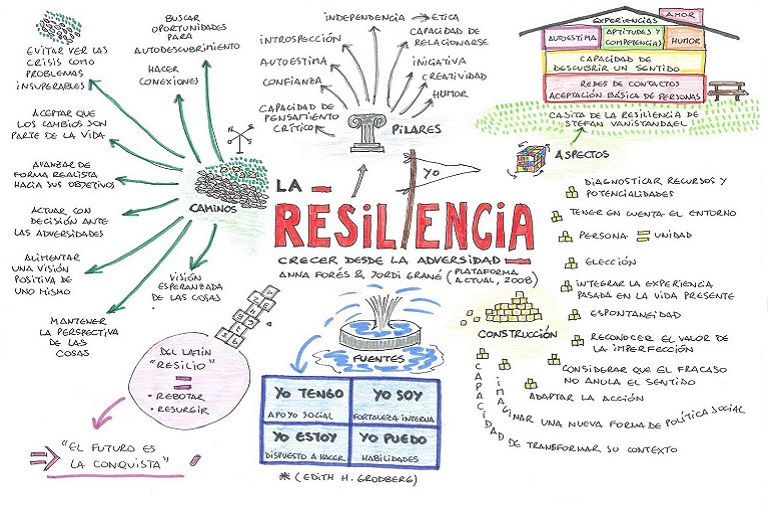 LA
RESILIENCIA
CRECER DESDE LA ADVERSIDAD
ANNA FORÉS & JORDI GRANÉ (PLATAFORMA
ACTUAL, 2008)
YO
CAMINOS
EVITAR VER LAS
CRISIS COMO
PROBLEMAS
INSUPERABLES
BUSCAR
OPORTUNIDADES
PARA
AUTODESCUBRIMIENTO
HACER
CONEXIONES
ACEPTAR QUE
LOS CAMBIOS SON
PARTE DE LA VIDA
AVANZAR DE
FORMA REALISTA
HACIA SUS OBJETIVOS
ACTUAR CON
DECISIÓN ANTE
LAS ADVERSIDADES
ALIMENTAR
UNA VISIÓN
POSITIVA DE
UNO MISMO
MANTENER
LA PERSPECTIVA
DE LAS
COSAS
VISIÓN
ESPERANZADA
DE LAS COSAS
PILARES
INDEPENDENCIA
ETICA
INTROSPECCIÓN
CAPACIDAD DE
RELACIONARSE
AUTOESTIMA
INICIATIVA
CONFIANZA
CREATIVIDAD
HUMOR
CAPACIDAD DE
PENSAMIENTO
CRÍTICO
AMOR
EXPERIENCIAS
AUTOESTIMA
APTITUDES Y
COMPETENCIAS
HUMOR
CAPACIDAD DE
DESCUBRIR UN SENTIDO
REDES DE CONTACTOS
ACEPTACIÓN BÁSICA DE PERSONAS
CASITA DE LA RESILIENCIA DE
STEFAN VANISTANDAEL
ASPECTOS
DIAGNOSTICAR RECURSOS Y
POTENCIALIDADES
TENER EN CUENTA EL ENTORNO
PERSONA = UNIDAD
ELECCIÓN
INTEGRAR LA EXPERIENCIA
PASADA EN LA VIDA PRESENTE
ESPONTANEIDAD
CONSTRUCCIÓN
RECONOCER EL VALOR DE
LA IMPERFECCIÓN
CONSIDERAR QUE EL FRACASO
NO ANULA EL SENTIDO
ADAPTAR LA ACCIÓN
IMAGINAR UNA NUEVA FORMA DE POLÍTICA SOCIAL
CAPACIDAD DE TRANSFORMAR SU CONTEXTO
FUENTES
YO TENGO
APOYO SOCIAL
YO SOY
FORTALEZA INTERNA
YO ESTOY
DISPUESTO A HACER
YO PUEDO
HABILIDADES
* (EDITH H. GRODBERG)
DEL LATÍN
"RESILIO"
=
• REBOTAR
• RESURGIR
"EL FUTURO ES
LA CONQUISTA"